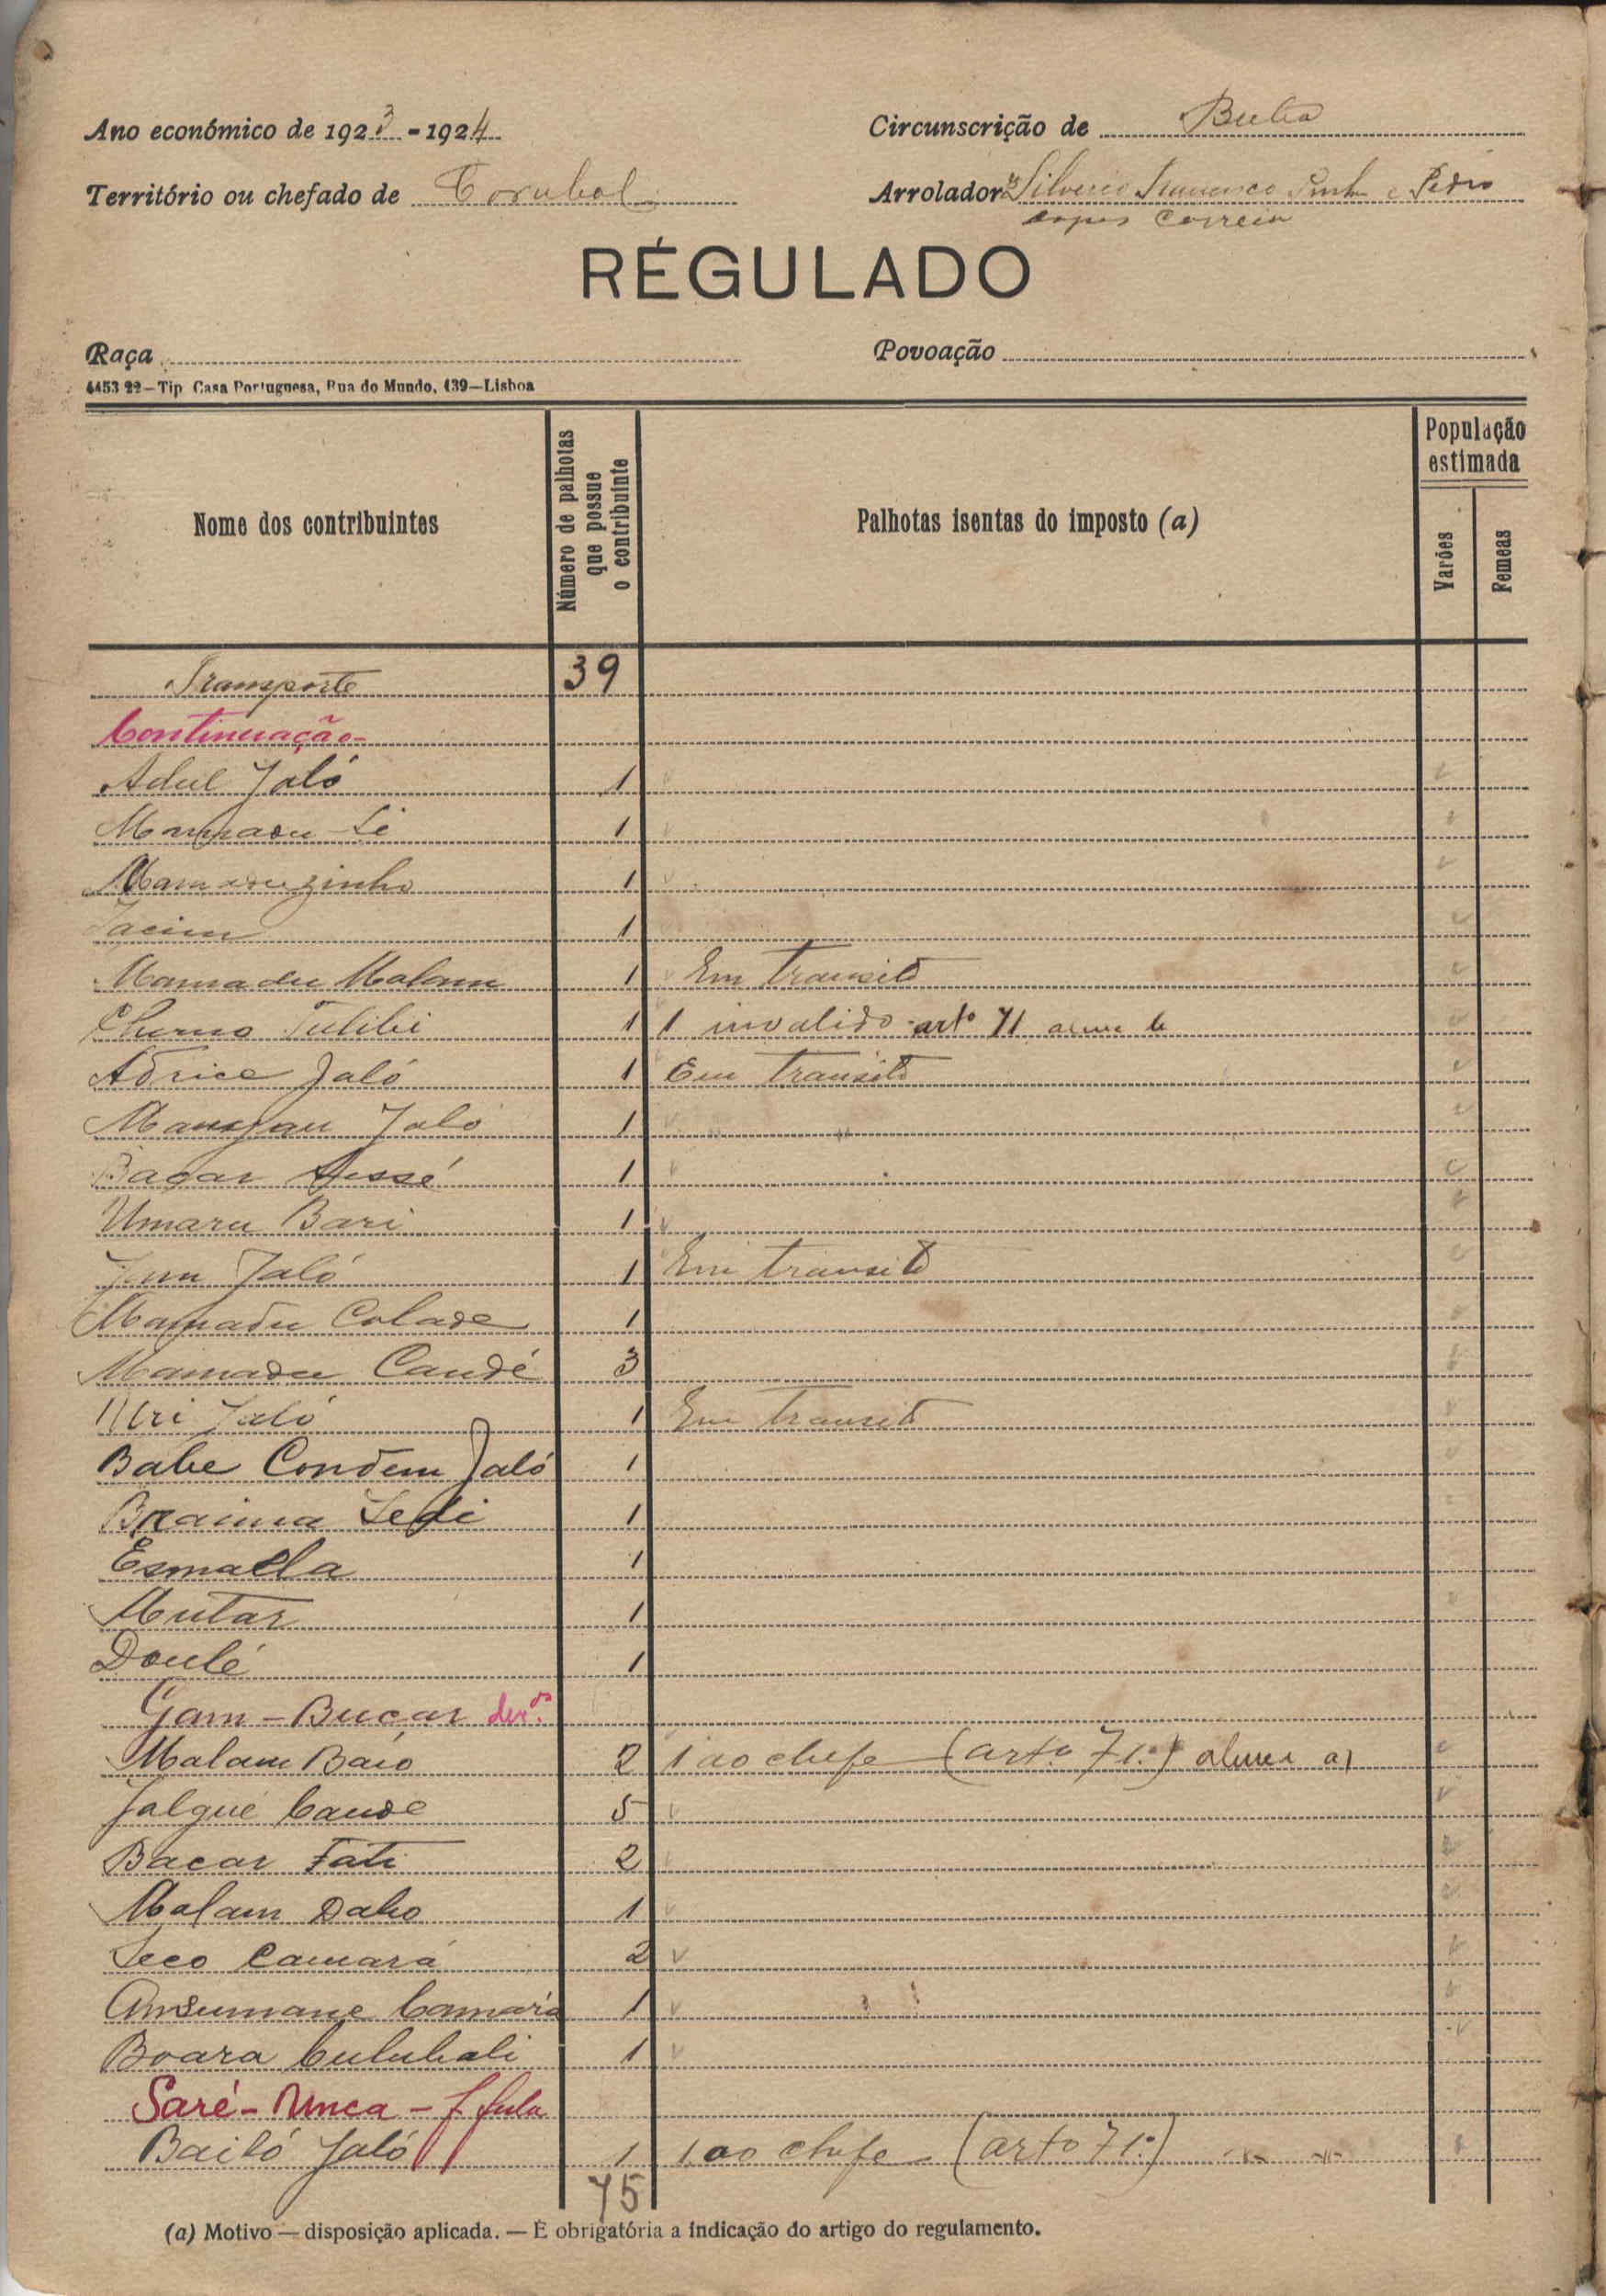 Ano económico de 1923-1924
Circunscrição de Buba
Território ou chefado de Corubal
Arrolador Silverio Francisco e Pedro
Lopes Correia
RÉGULADO
Raça
Povoação
4453 22—Tip Casa Portuguesa, Rua do Mundo, 139—Lisboa
Nome dos contribuintes
Número de palhotas que possue o contribuinte
Palhotas isentas do imposto (a)
População estimada
Varões
Femeas
Transporte 39
Continuação
Adul Jaló 1
Mamadu Sé 1
Mamaduzinho 1
1
Mamadu Malam 1 Em transito
Cherno Tulibi 1 1 invalido arto 71 b
Adrice Jaló 1 Em transito
Jaló 1
Bacar Sissé 1
Umaru Bari 1
Jaló 1 Em transito
Mamadu Colade 1
Mamadu Candé 3
Jaló 1 Em transito
Babe Condem Jaló 1
Braima 1
Esmaela 1
Mutar 1
Doulé 1
Gam-Bucar
Malam Baio 2 1 ao chefe (arto 71.º) alinea a)
Jalqué Cande 5
Bacar Fati 2
Malam Dabo 1
Seco Camará 2
Ansumane Camará 1
Boara Culubali 1
Saré-Unca - f fula
Bailó Jaló 1 1 ao chefe (arto 71.º) " "
75
(a) Motivo — disposição aplicada. — É obrigatória a indicação do artigo do regulamento.